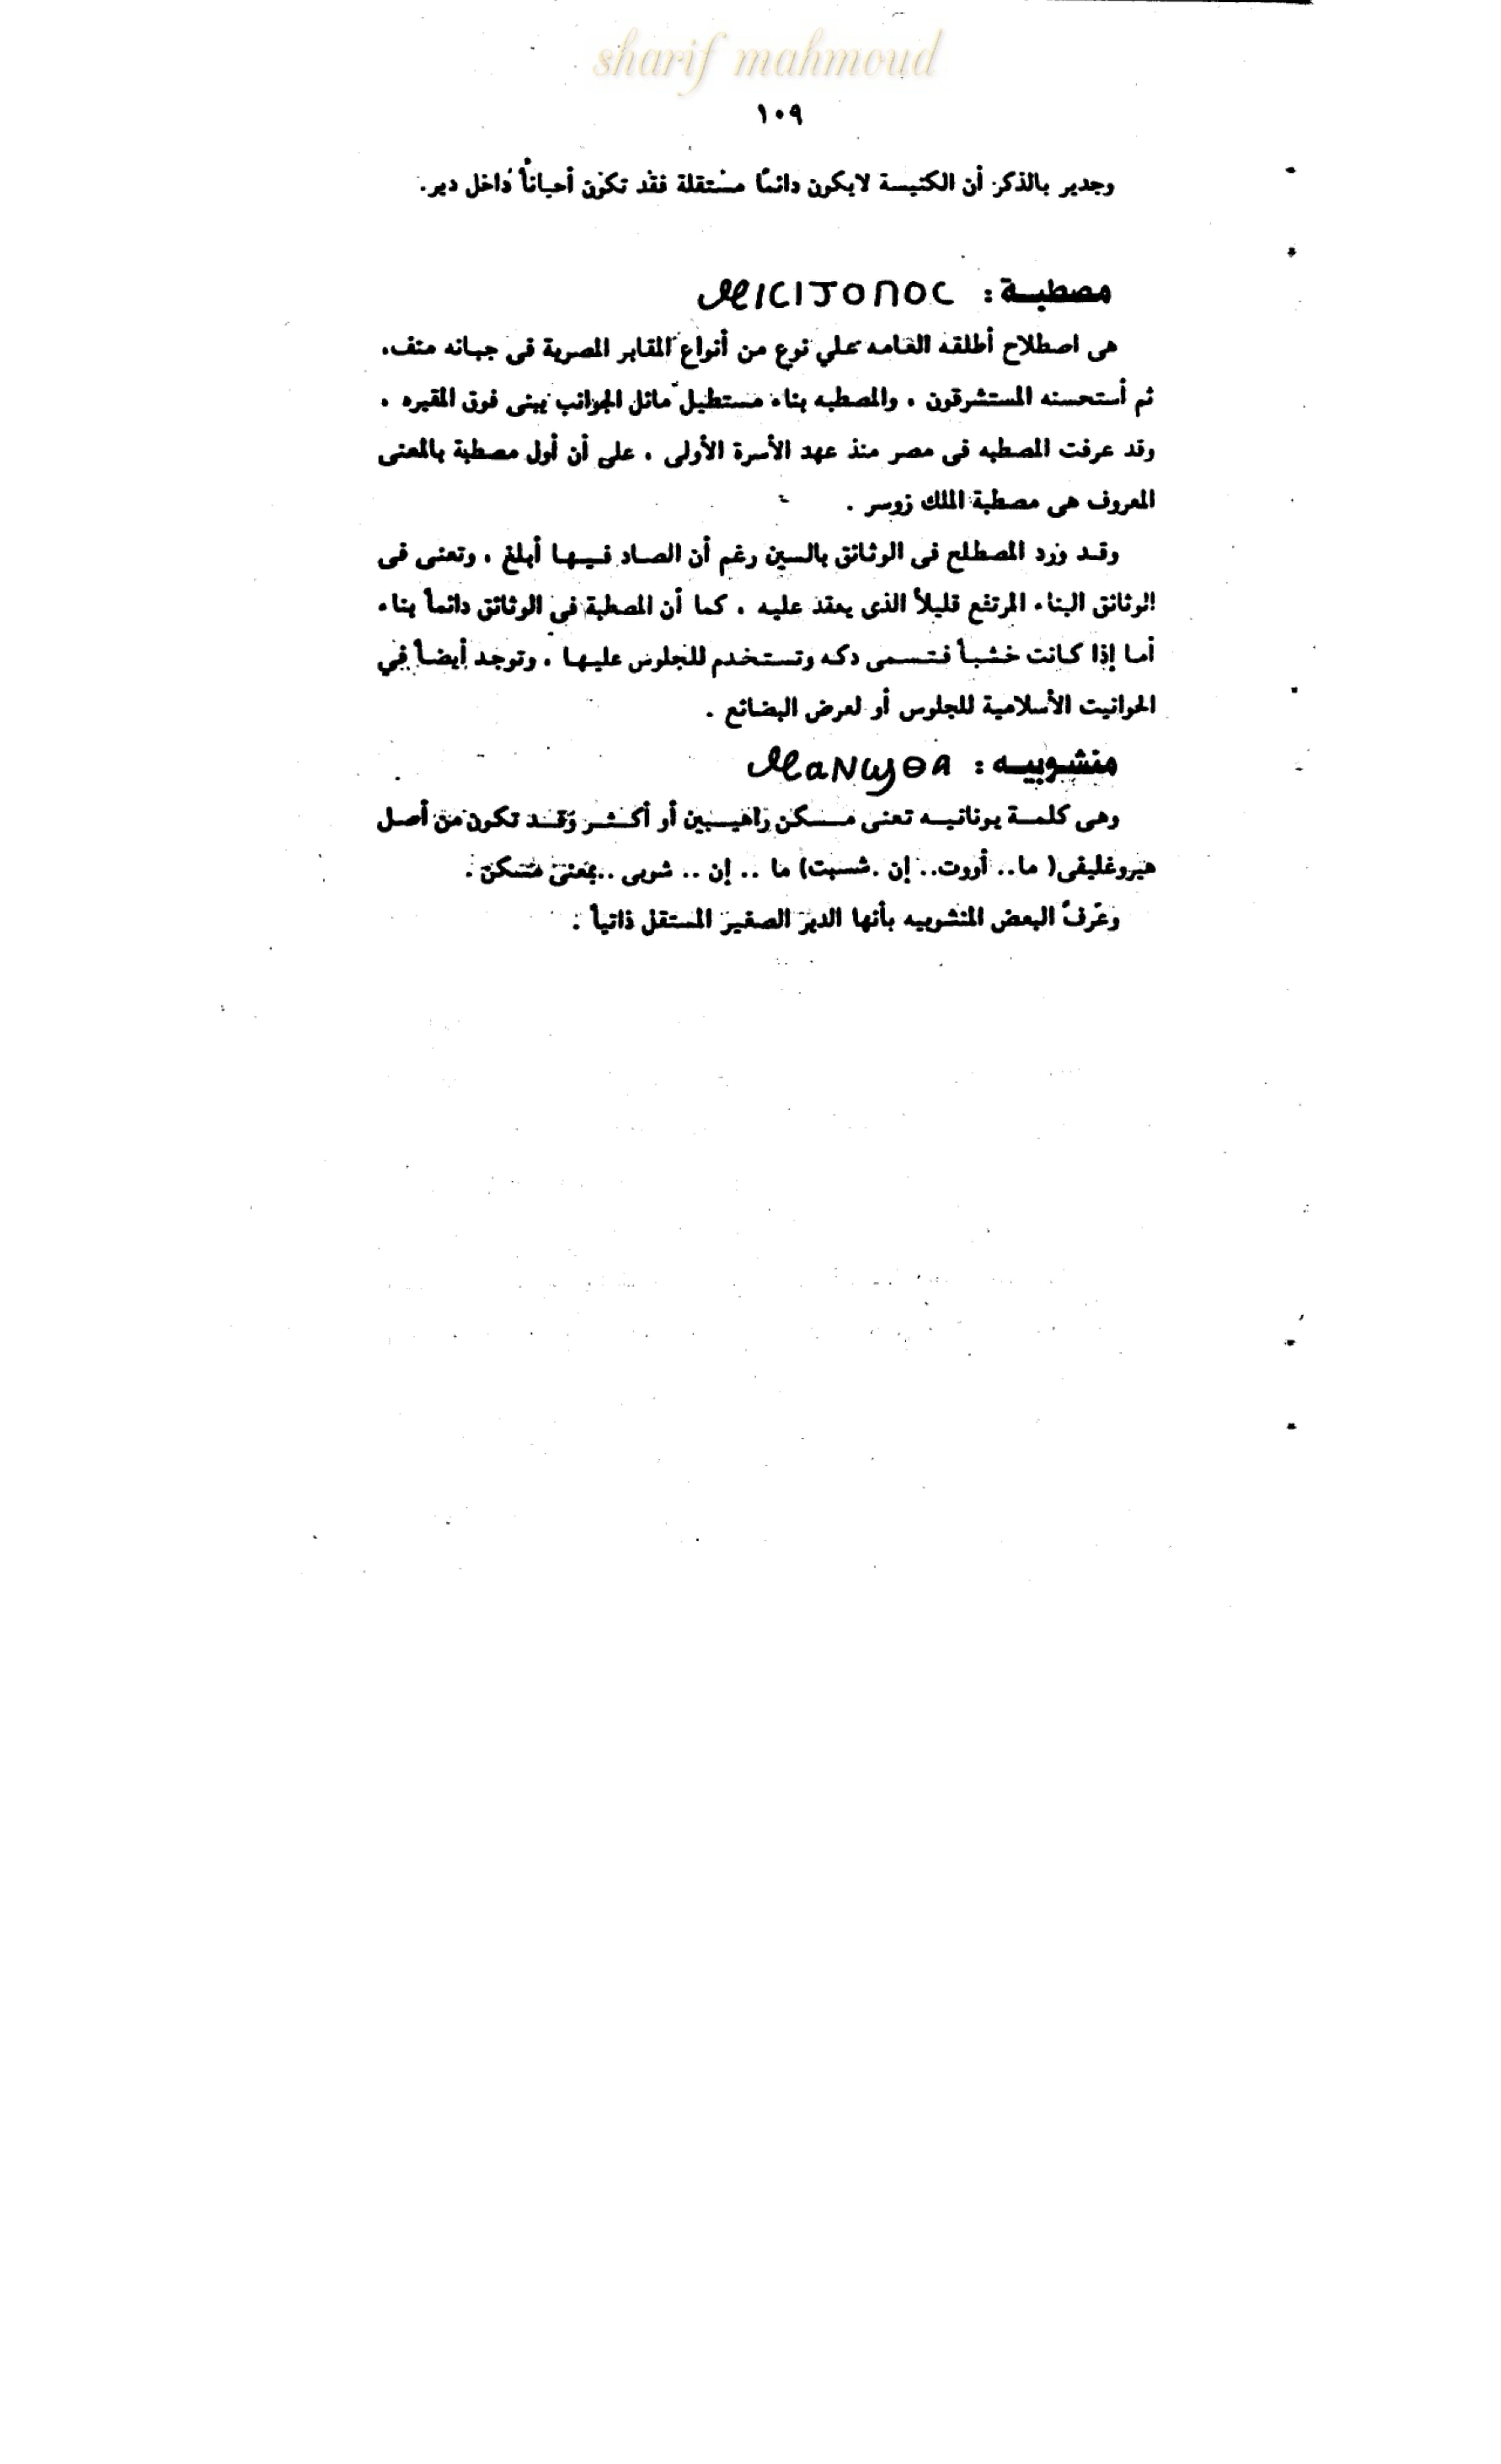 sharif mahmoud
١٠٩
وجدير بالذكر أن الكنيسة لايكون دائمًا مستقلة فقد تكون أحياناً داخل دير.
مصطبة : ⲘⲒⲤⲒⲦⲞⲠⲞⲤ
هى اصطلاح أطلقه العامه علي نوع من أنواع المقابر المصرية فى جبانه منف،
ثم أستحسنه المستشرقون ، والمصطبه بناء مستطيل مائل الجوانب يبنى فوق المقبره ،
وقد عرفت المصطبه فى مصر منذ عهد الأسرة الأولى ، على أن أول مصطبة بالمعنى
المعروف هى مصطبة الملك زوسر .
وقد ورد المصطلع فى الوثائق بالسين رغم أن الصاد فيها أبلغ ، وتعنى فى
الوثائق البناء المرتفع قليلاً الذى يعقد عليه ، كما أن المصطبة فى الوثائق دائماً بناء
أما إذا كانت خشباً فتسمى دكه وتستخدم للجلوس عليها ، وتوجد أيضاً في
الحوانيت الأسلامية للجلوس أو لعرض البضائع .
منشوبيه : ⲘⲀⲚϢⲐⲀ
وهى كلمة يونانيه تعنى مسكن راهبين أو أكثر وقد تكون من أصل
هيروغليفى( ما.. أووت.. إن .شسبت) ما .. إن .. شوبى ..بمعنى مسكن .
وعرف البعض المنشوبيه بأنها الدير الصغير المستقل ذاتياً .